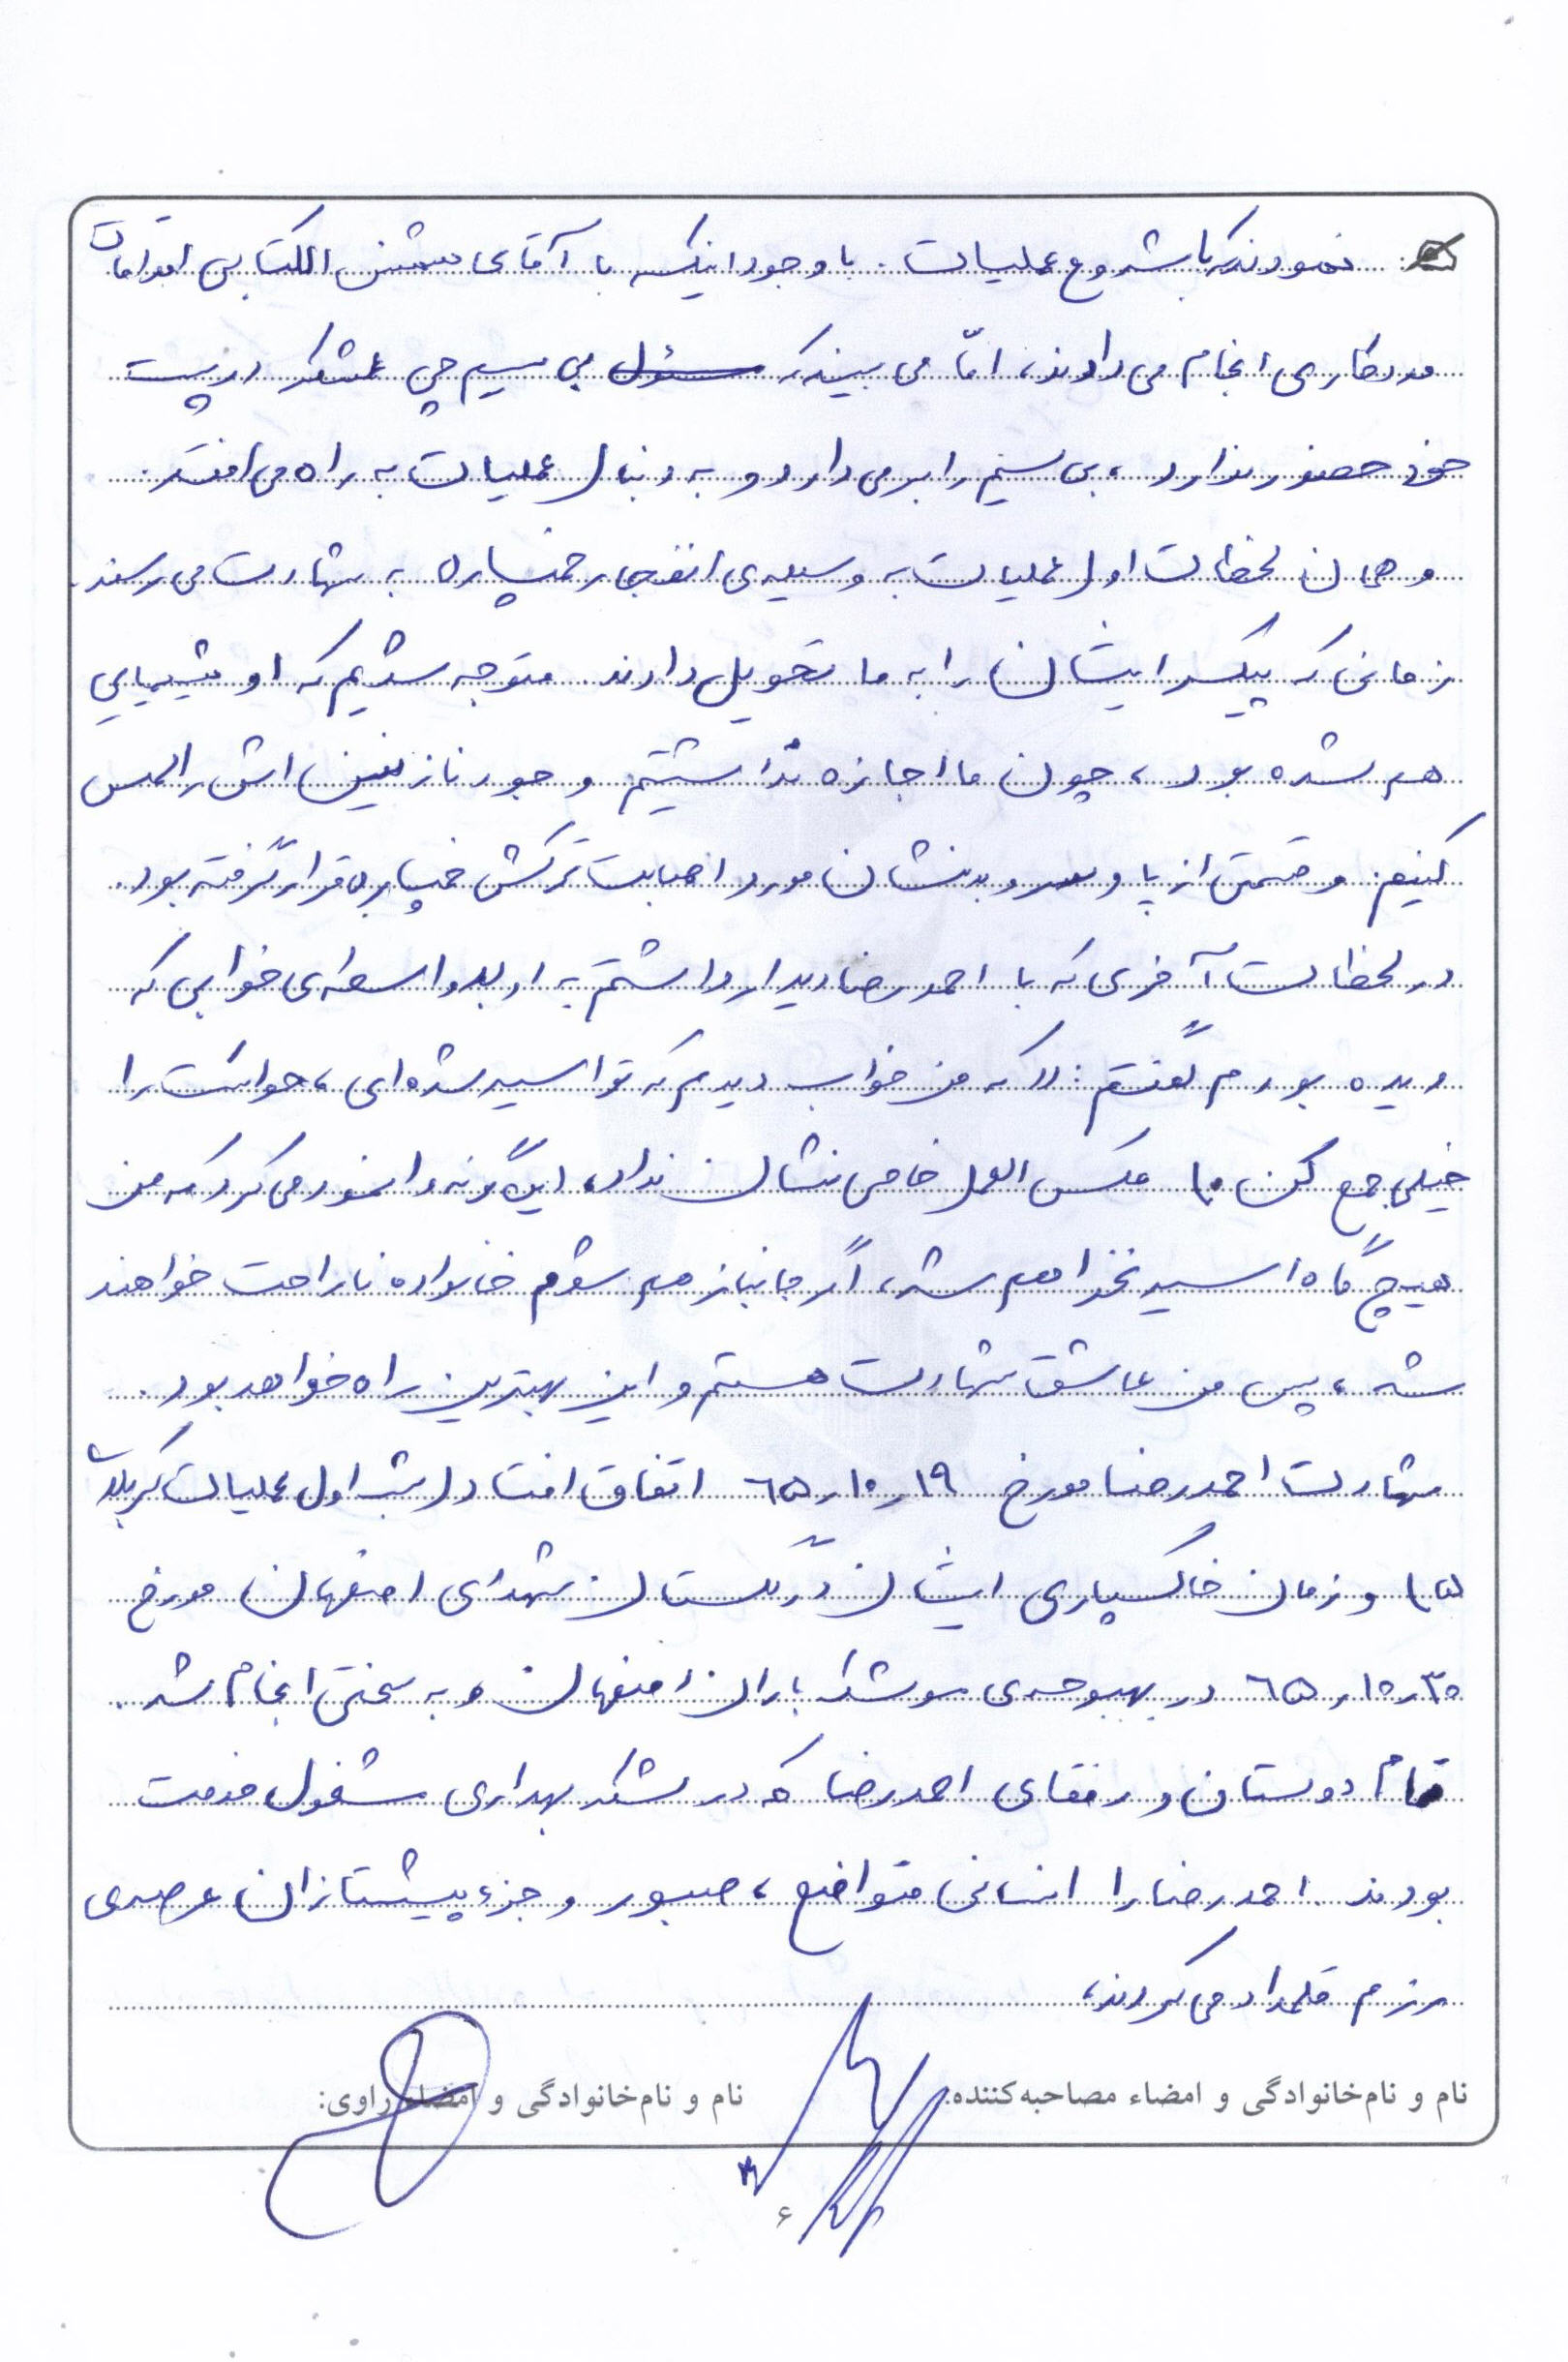 نمودند که با شروع عملیات. با وجود اینکه با آقای شمس الکتابی اقدامات
مددکاری انجام می دادند، امّا می بیند که مسئول بی سیم چی لشکر در پست
خود حضور ندارد، بی سیم را برمی دارد و به دنبال عملیات به راه می افتد.
و همان لحظات اول عملیات به وسیله ی انفجار خمپاره به شهادت می رسند.
زمانی که پیکر ایشان را به ما تحویل دادند متوجه شدیم که او شیمیایی
هم شده بود، چون ما اجازه نداشتیم وجود نازنین اش را لمس
کنیم. و قسمتی از پا و سر و بدنشان مورد اصابت ترکش خمپاره قرار گرفته بود.
در لحظات آخری که با احمدرضا دیدار داشتم به او بواسطه ی خوابی که
دیده بودم گفتم: «که من خواب دیدم که تو اسیر شده ای، حواست را
خیلی جمع کن.» عکس العمل خاصی نشان نداد، اینگونه وانمود می کرد که من
هیچ گاه اسیر نخواهم شد، اگر جانباز هم شوم خانواده ناراحت خواهند
شد، پس من عاشق شهادت هستم و این بهترین راه خواهد بود.
شهادت احمدرضا مورخ ۶۵/۱۰/۱۹ اتفاق افتاد (شب اول عملیات کربلای
۵) و زمان خاکسپاری ایشان در گلستان شهدای اصفهان، مورخ
۶۵/۱۰/۳۰ در بهبوحه ی موشک باران اصفهان و به سختی انجام شد.
تمام دوستان و رفقای احمدرضا که در لشکر بهداری مشغول خدمت
بودند. احمدرضا را انسانی متواضع، صبور و جزء پیشتازان عرصه ی
رزم قلمداد می کردند،
نام و نام خانوادگی و امضاء مصاحبه کننده: نام و نام خانوادگی و امضاء راوی:
۶